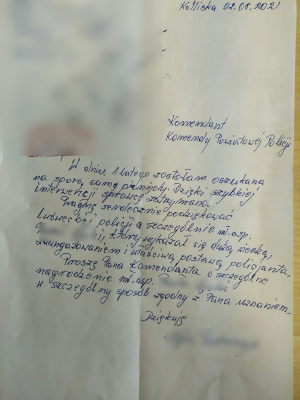 Kolliska 02.08.2021
Komendant
Komendy Powiatowej Policji
W dniu 1 lutego zostałam oszukana
na sporą sumę pieniędzy. Dzięki szybkiej
interwencji sprawcę zatrzymano.
Pragnę serdecznie podziękować
policji a szczególnie mł.asp.
który wykazał się dużą wiedzą,
zaangażowaniem i właściwą postawą policjanta.
Proszę Pana Komendanta o szczególne
nagrodzenie mł.asp.
w szczególny sposób zgodny z Pana uznaniem.
Dziękuję